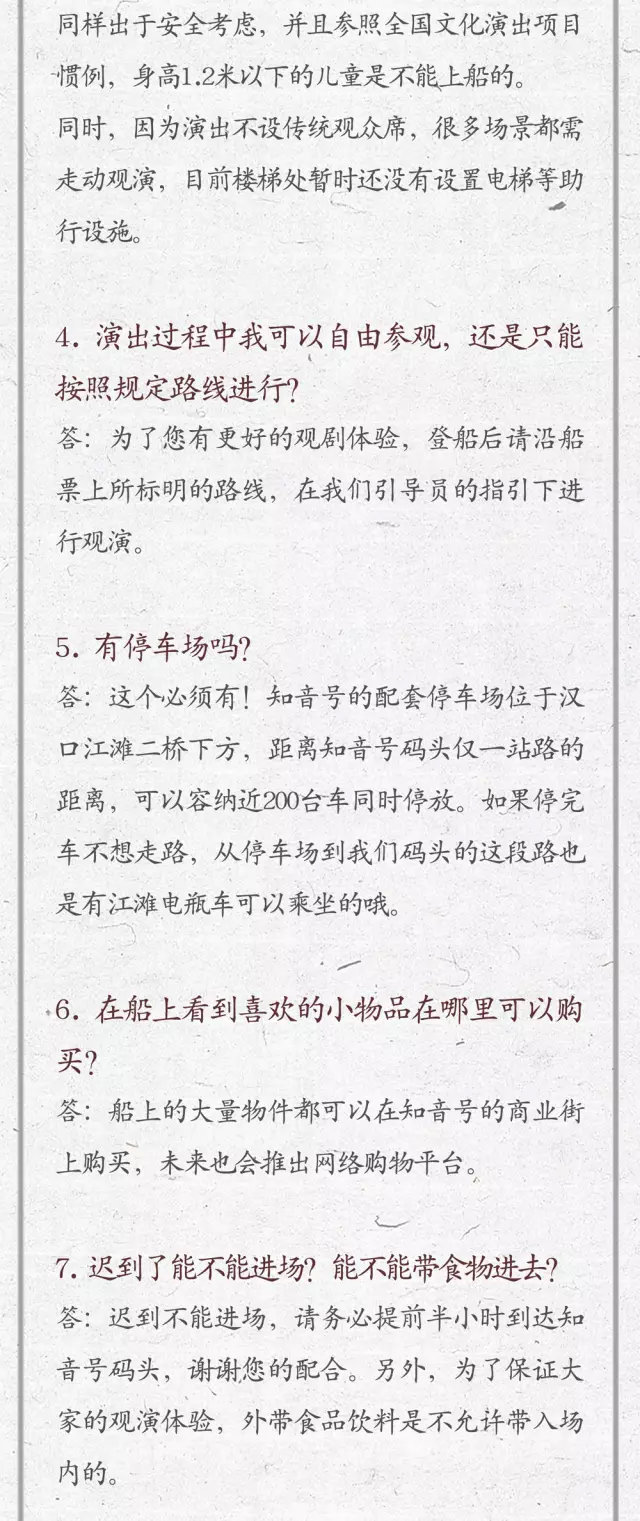 同样出于安全考虑，并且参照全国文化演出项目
惯例，身高1.2米以下的儿童是不能上船的。
同时，因为演出不设传统观众席，很多场景都需
走动观演，目前楼梯处暂时还没有设置电梯等助
行设施。
4. 演出过程中我可以自由参观，还是只能
按照规定路线进行？
答：为了您有更好的观剧体验，登船后请沿船
票上所标明的路线，在我们引导员的指引下进
行观演。
5. 有停车场吗？
答：这个必须有！知音号的配套停车场位于汉
口江滩二桥下方，距离知音号码头仅一站路的
距离，可以容纳近200台车同时停放。如果停完
车不想走路，从停车场到我们码头的这段路也
是有江滩电瓶车可以乘坐的哦。
6. 在船上看到喜欢的小物品在哪里可以购
买？
答：船上的大量物件都可以在知音号的商业街
上购买，未来也会推出网络购物平台。
7. 迟到了能不能进场？能不能带食物进去？
答：迟到不能进场，请务必提前半小时到达知
音号码头，谢谢您的配合。另外，为了保证大
家的观演体验，外带食品饮料是不允许带入场
内的。